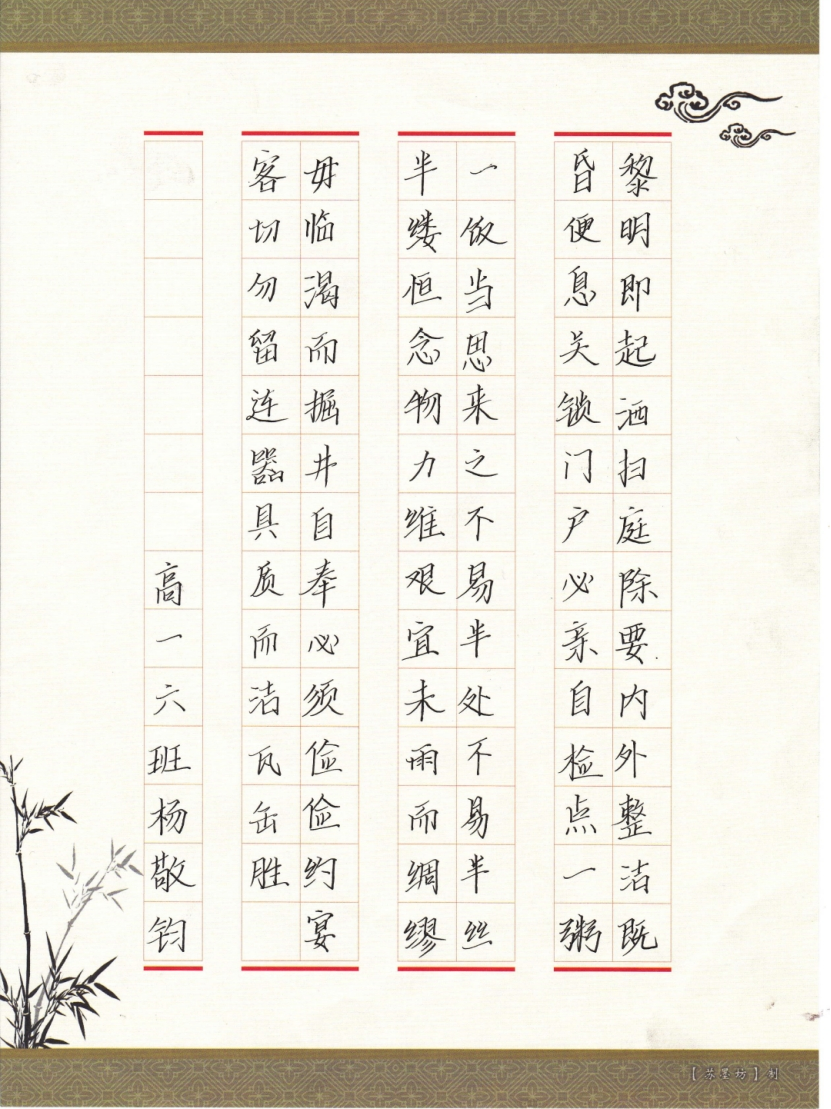 黎明即起洒扫庭除要内外整洁既
昏便息关锁门户必亲自检点一粥
一饭当思来之不易半处不易半丝
半缕恒念物力维艰宜未雨而绸缪
毋临渴而掘井自奉必须俭俭约宴
客切勿留连器具质而洁瓦缶胜
高一六班杨敬钧